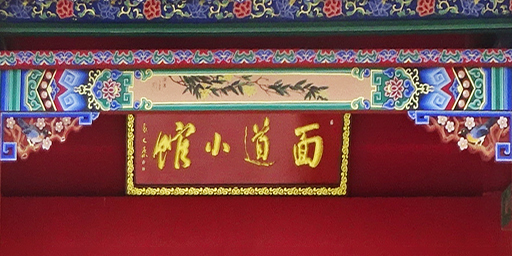 面道小馆